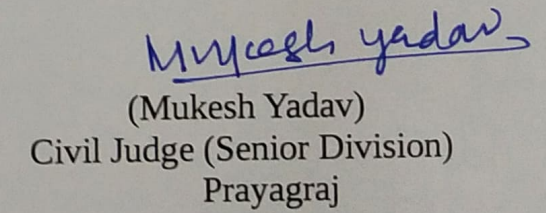 Mukesh Yadav
(Mukesh Yadav)
Civil Judge (Senior Division)
Prayagraj